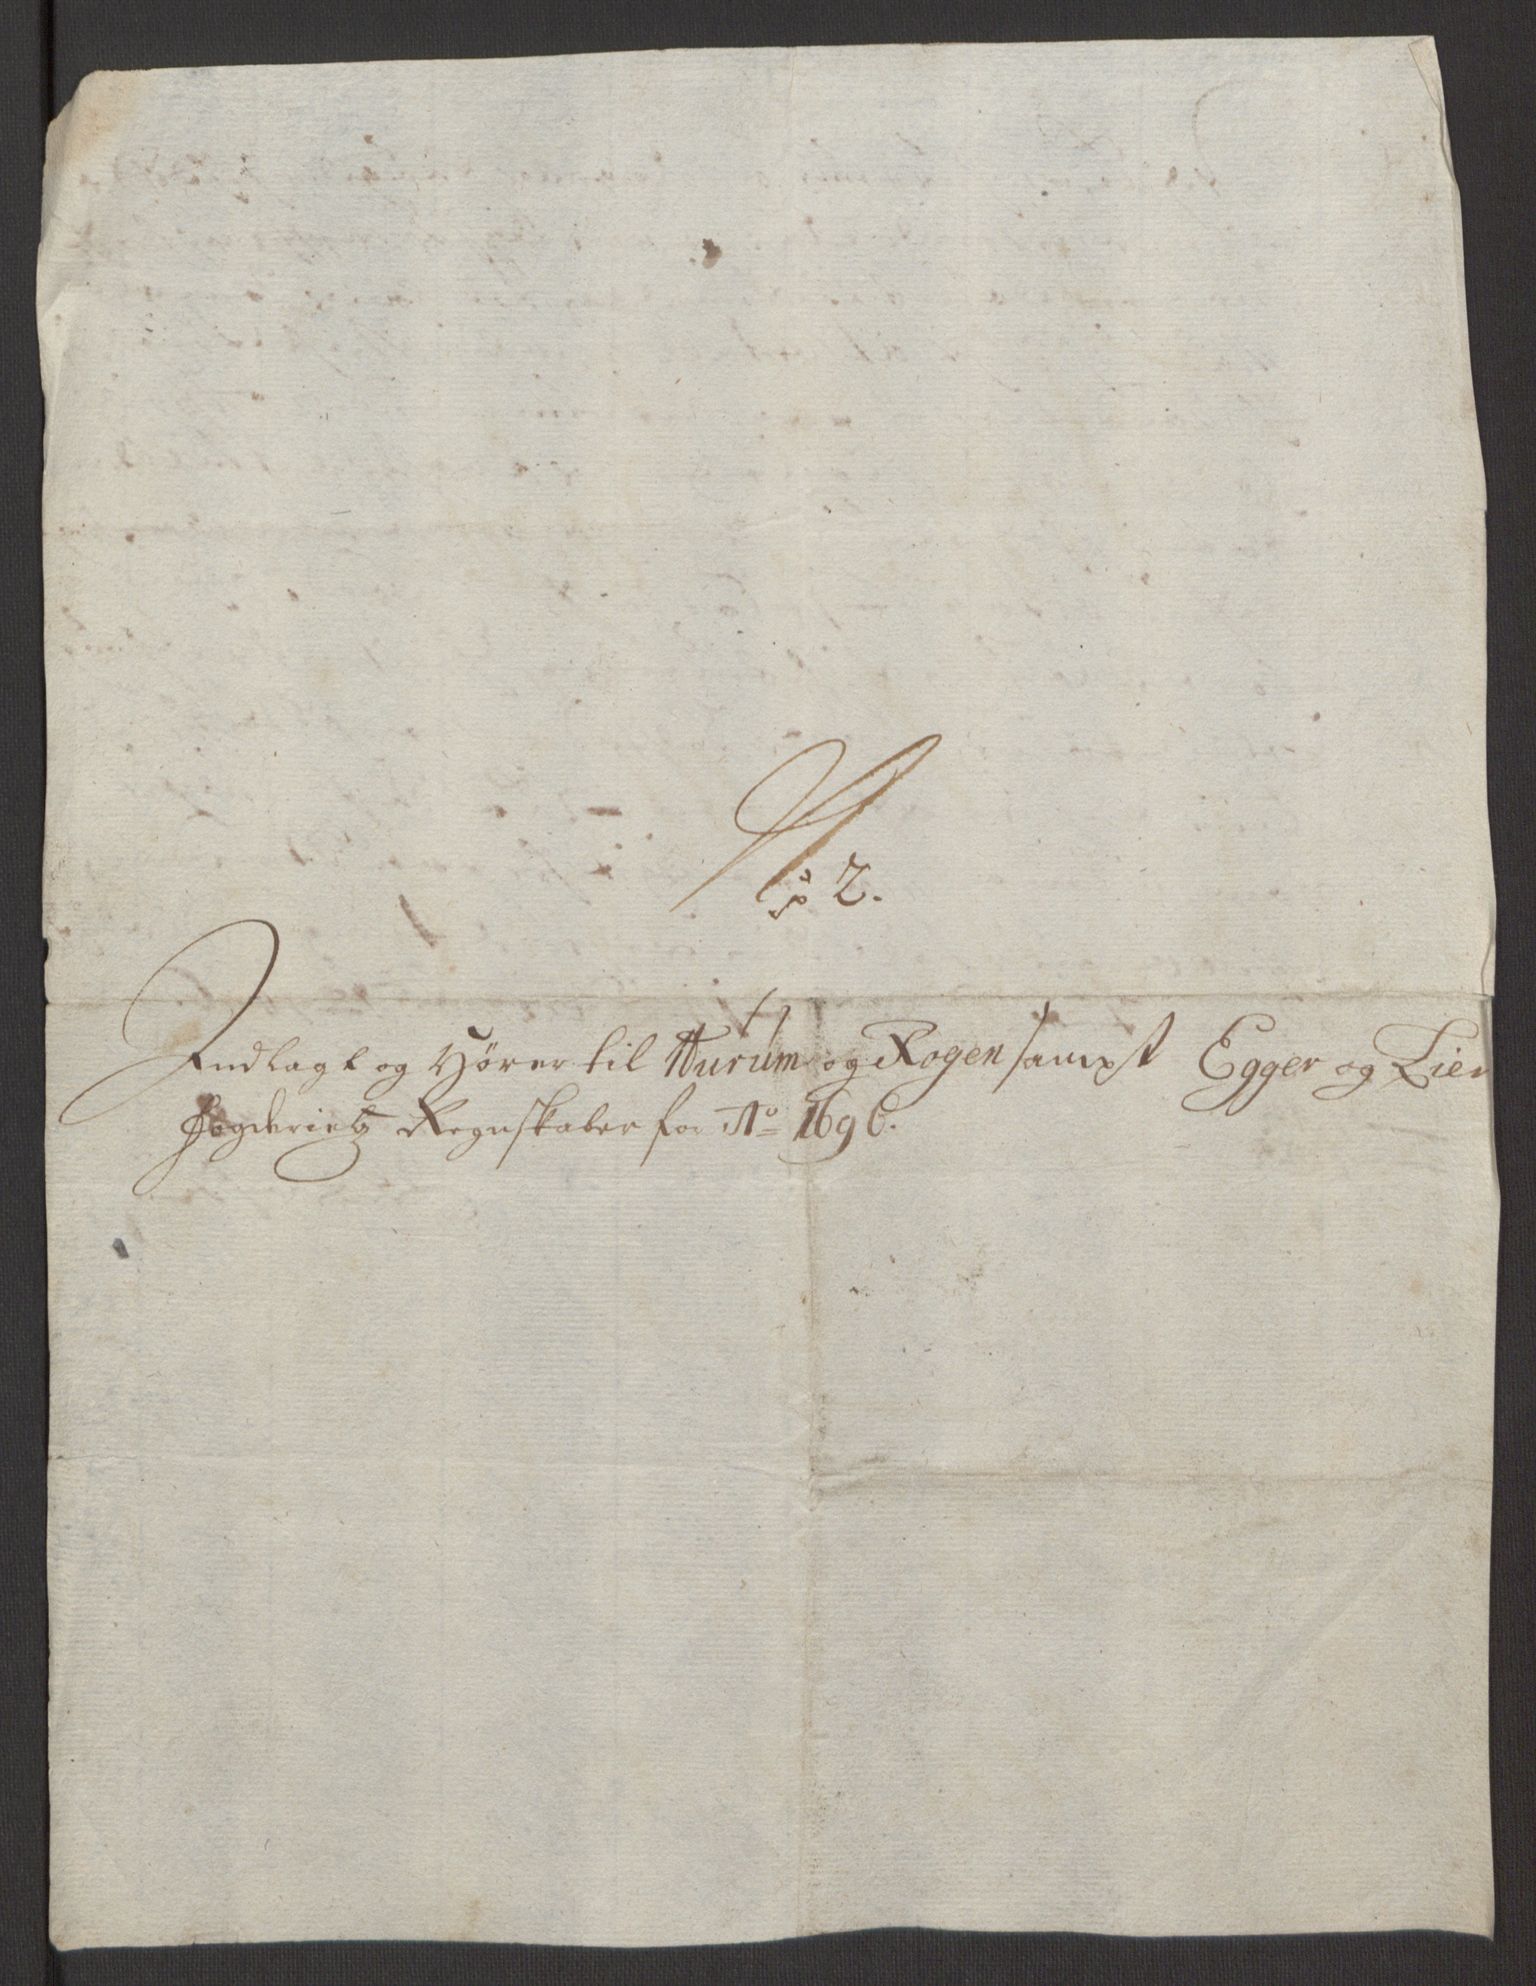 No 2.
Indlagt og Hörer til Hurum og Rögen sampt Egger og Lier
fogderietz Regnskaber for Ao 1696.